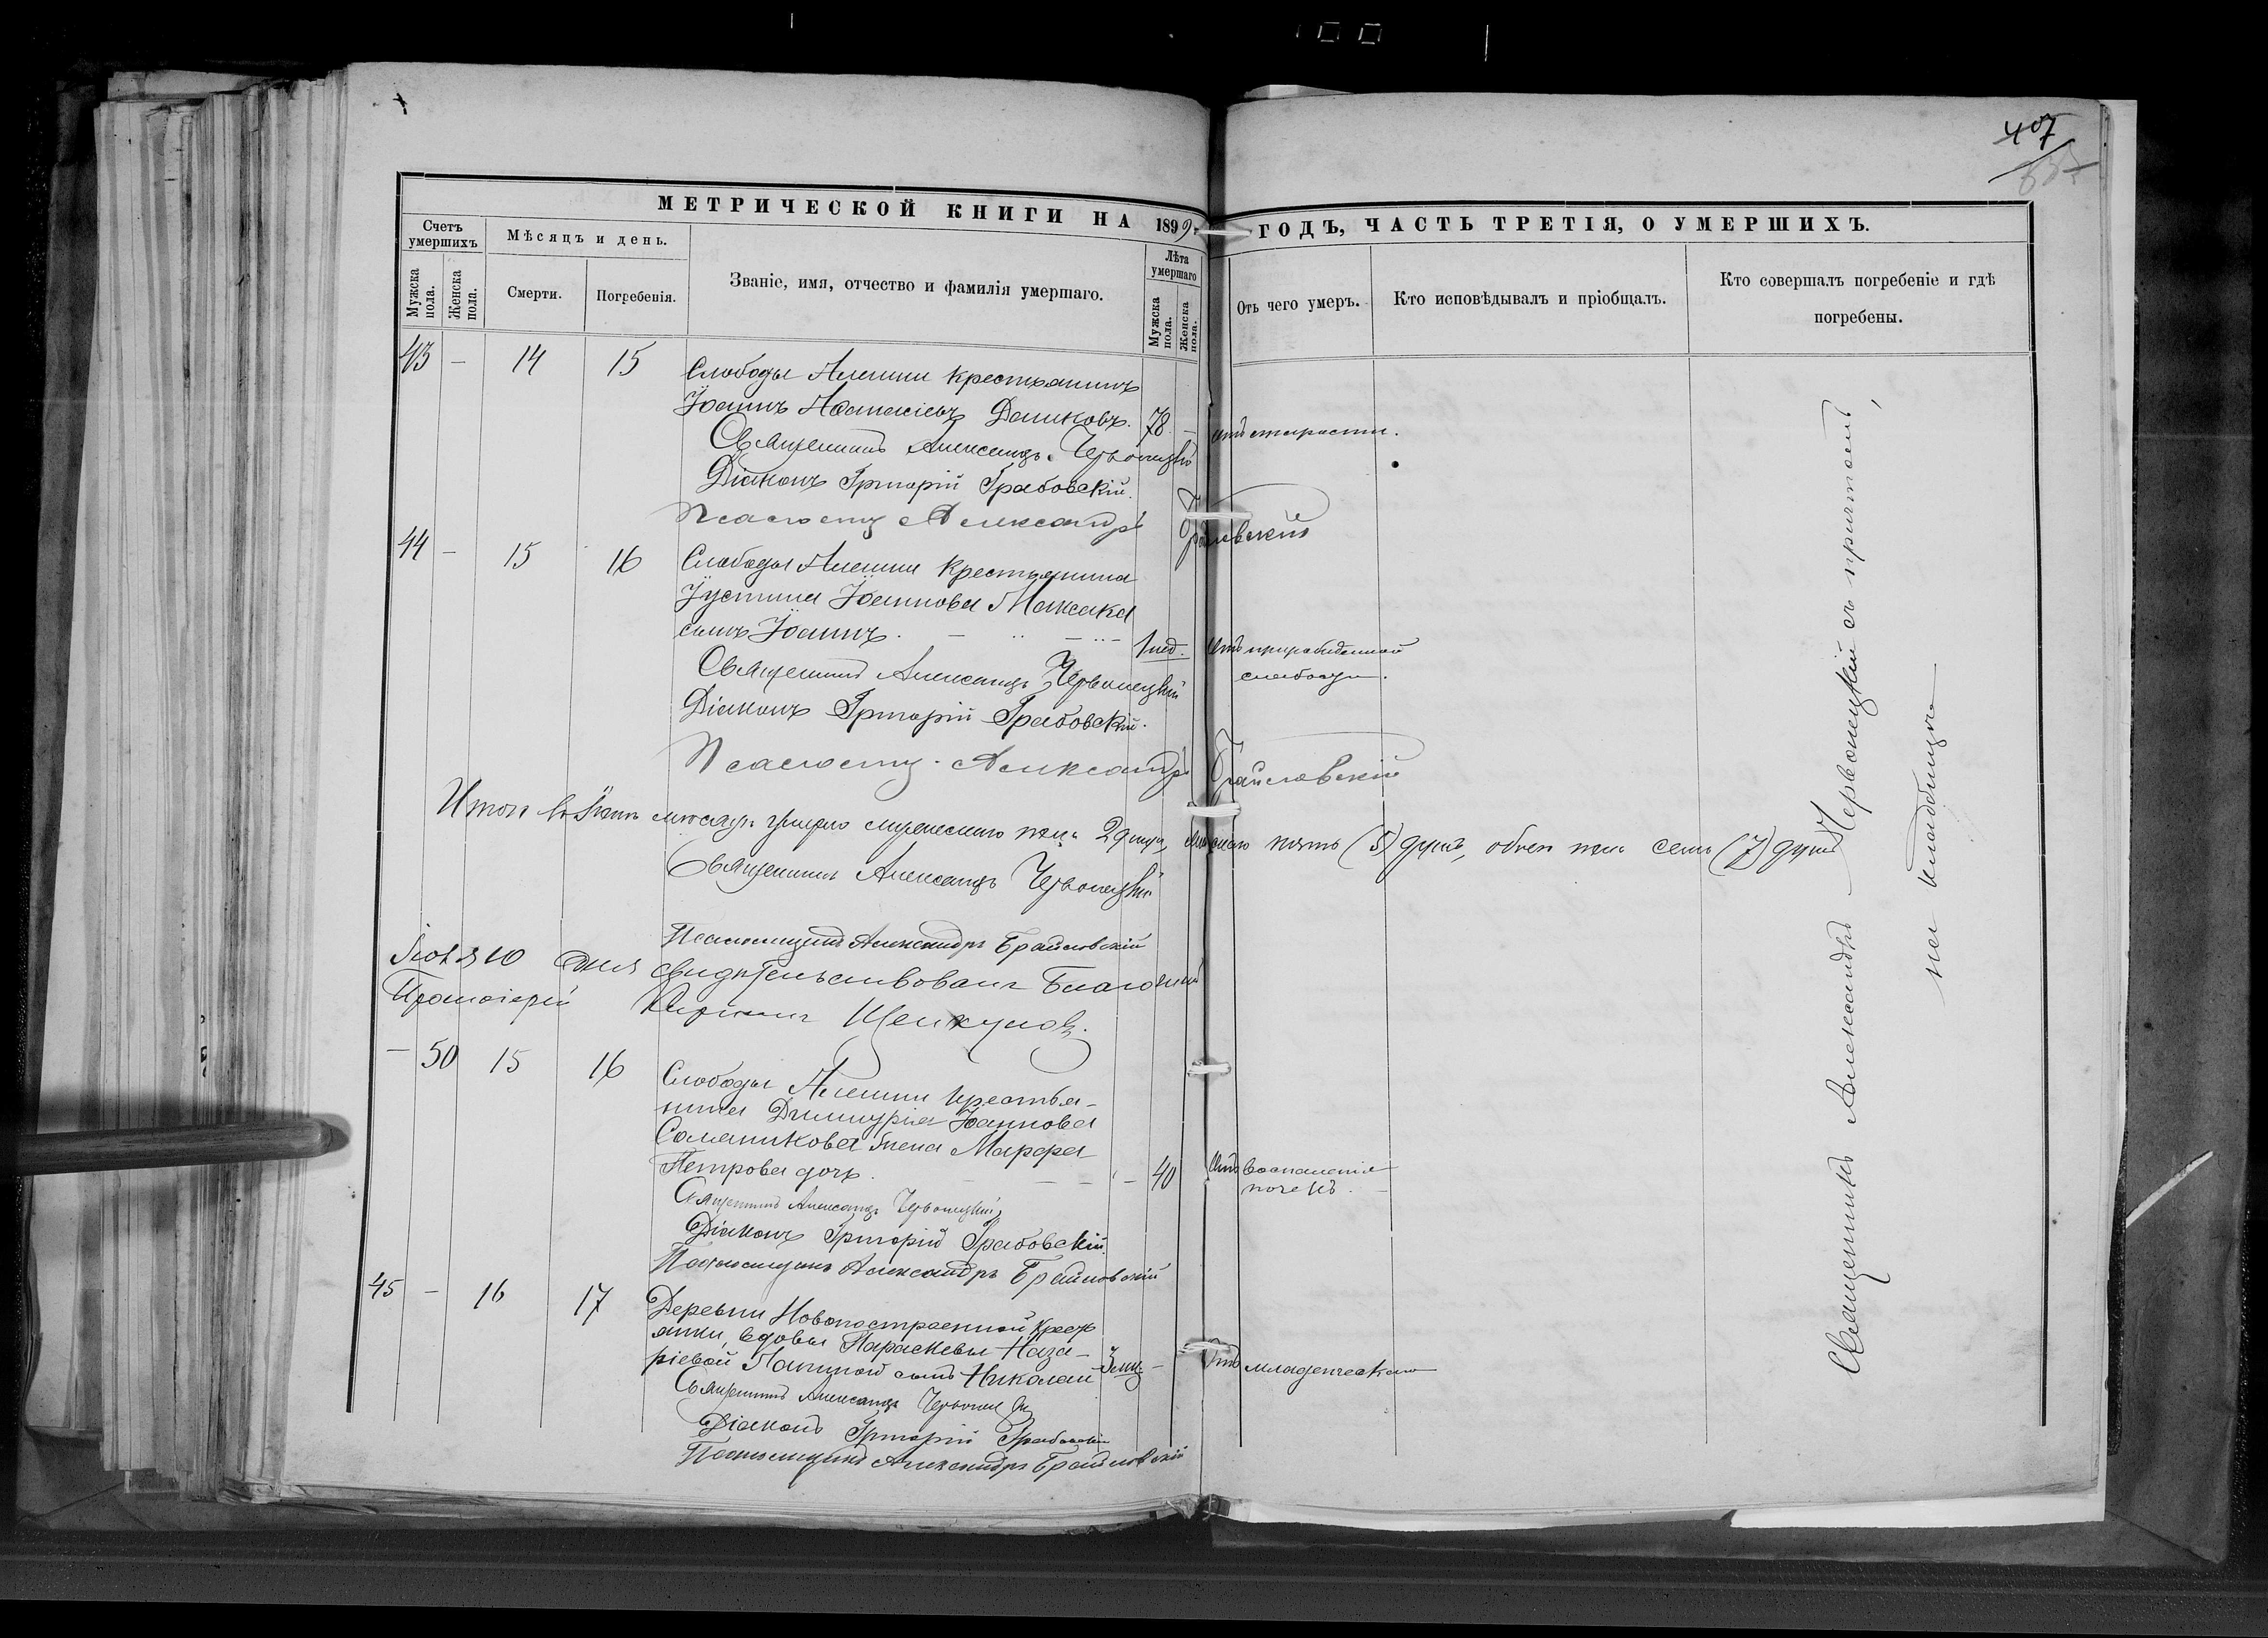 407
МЕТРИЧЕСКОЙ КНИГИ НА 1899 г. ГОДЪ, ЧАСТЬ ТРЕТІЯ, О УМЕРШИХЪ.
Счетъ умершихъ
Мѣсяцъ и день.
Званіе, имя, отчество и фамилія умершаго.
Лѣта умершаго
Отъ чего умеръ.
Кто исповѣдывалъ и пріобщалъ.
Кто совершалъ погребеніе и гдѣ погребены.
Мужска пола.
Женска пола.
Смерти.
Погребенія.
Мужска пола.
Женска пола.
43 – 14 15 Слободы Алешни крестьянинъ
Іоаннъ Аѳанасіевъ Данковъ. 78 – отъ старости.
Священникъ Александръ Червонецкій
Діаконъ Григорій Грабовскій.
Псаломщ Александръ Брайловскій
44 – 15 16 Слободы Алешни крестьянина
Іустина Іоаннова Мажака
сынъ Іоаннъ. 1 нед. Отъ прирожденной
слабости.
Священникъ Александръ Червонецкій
Діаконъ Григорій Грабовскій.
Псаломщ. Александръ Брайловскій
Итого въ Іюнѣ мѣсяцѣ умерло мужескаго пола 2 душъ, женскаго пять (5) душъ, обоего пола семь (7) душъ
Священникъ Александръ Червонецкій
Псаломщикъ Александръ Брайловскій
Іюля 10 дня свидѣтельствовалъ Благочинный
Протоіерей Щелкуновъ.
– 50 15 16 Слободы Алешни крестья-
нина Димитрія Іоаннова
Саланикова жена Марфа
Петрова дочь. – 40 Отъ воспаленія
почекъ.
Священникъ Александръ Червонецкій
Діаконъ Григорій Грабовскій.
Псаломщикъ Александръ Брайловскій
45 – 16 17 Деревни Новопостроенной крест
янки, вдовы Параскевы Наза-
ріевой сынъ Николай 3 мц. – Отъ младенческаго
Священникъ Александръ Червонецкій
Діаконъ Григорій Грабовскій
Псаломщикъ Александръ Брайловскій
Священникъ Александръ Червонецкій съ причтомъ,
на кладбищѣ